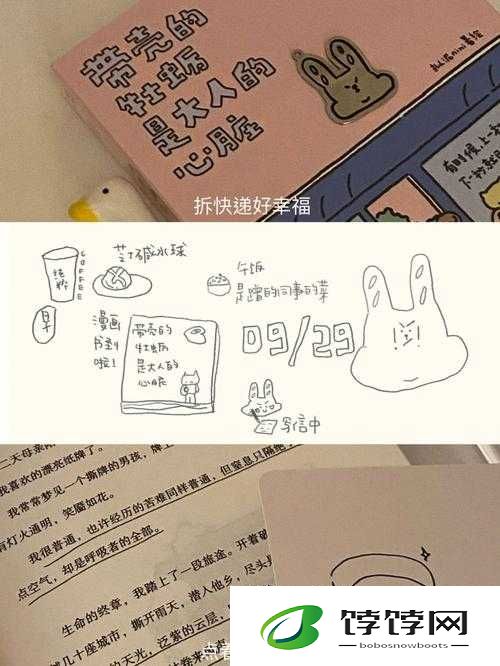 带壳的
牡蛎
是大人的
心脏
有时候，上一
下一秒就
拆快递好幸福
COFFEE
芝士碱水球
早
午饭
是蹭的同事的菜
漫画
收到
啦！
带壳的
牡蛎
是大人的
心脏
09/29
写信中
二天母亲
我喜欢的漂亮纸牌了。
我常常梦见一个撕牌的男孩，牌
有灯火通明，笑靥如花。
我很普通，也许经历的苦难同样普通，但窒息只隔绝
点空气，却是呼吸者的全部。
生命的终章，我踏上了一段旅途。开着破
几十座城市，撕开雨天，潜入他乡，尽头是
的天光，泛紫的云层，
饽饽网
bobosnowboots.com